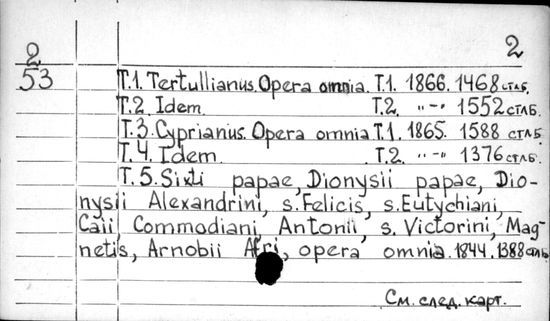 2
2
53
T.1. Tertullianus. Opera omnia. T.1. 1866. 1468 стлб.
T.2. Idem T.2. "-" 1552 стлб.
T.3. Cyprianus. Opera omnia T.1. 1865. 1588 стлб.
T.4. Idem. T.2. "-" 1376 стлб.
T.5. Sixti papae, Dionysii papae, Dio-
nysii Alexandrini, s.Felicis, s.Eutychiani,
Caii, Commodiani, Antonii, s.Victorini, Mag-
netis, Arnobii Afri, opera omnia. 1844. 1388 стлб.
См. след. карт.